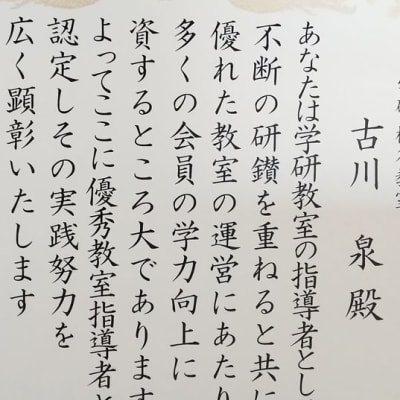 教室
古川 泉 殿
あなたは学研教室の指導者とし
不断の研鑽を重ねると共に
優れた教室の運営にあたり
多くの会員の学力向上に
資するところ大であります
よってここに優秀教室指導者と
認定しその実践努力を
広く顕彰いたします